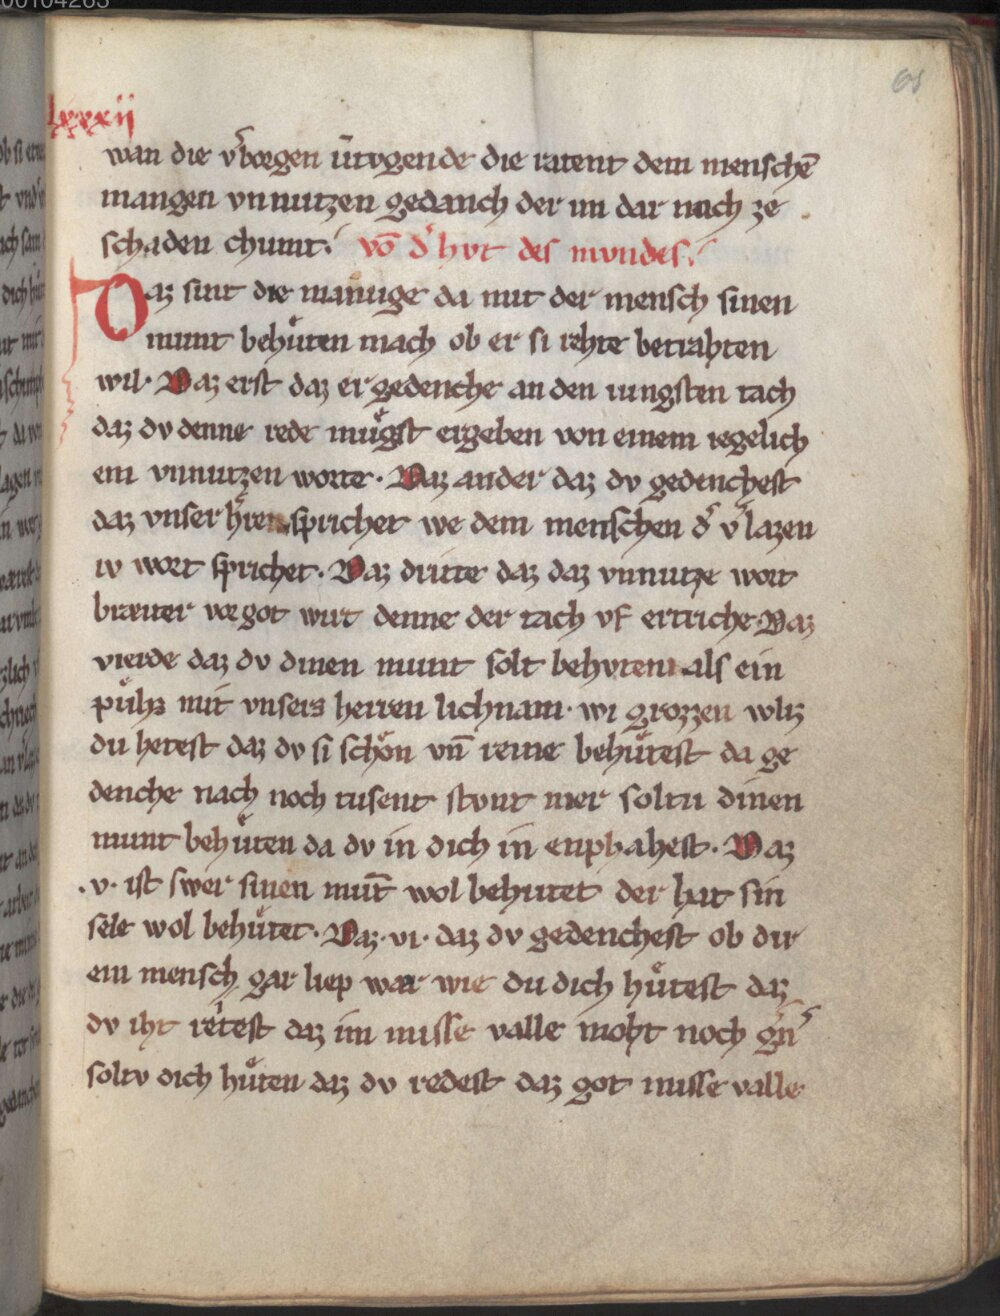 lxxxii
wan die v͛boꝛgen ūtvgende die ratent dem menschē
mangen vnnutzen gedanch der im dar nach ze
schaden chumt. vō d͛ hvt des mvndes.
Daz sint die maninge da mit der mensch sinen
munt behuͤten mach ob er si rehte betrahten
wil· Daz erst daz er gedenche an den iungsten tach
daz dv denne rede muͤgst ergeben von einem iegelich
em vnnutzen worte· Daz ander daz dv gedenchest
daz vnser spricher we dem menschen d͛ v͛lazen
iv wort sprichet· Daz dritte daz daz vnnutze wort
braeiter voꝛ got wirt denne der tach vf ertriche· Daz
vierde daz dv dinen munt solt behvten als ein
puͤhs mit vnsers herren lichnam· wi grozzen vliz
du hetest daz dv si schoͤn vn̄ reine behuͤtest da ge
denche nach noch tusent stvnt mer soltu dinen
munt behuͤten da dv in dich in enphahest· Daz
·v· ist swer sinen mūt wol behutet der hat sin
sele wol behuͤtet· Daz ·vi· daz dv gedenchest ob dir
ein mensch gar liep waer wie du dich huͤtest daz
dv iht retest daz im misse valle moht noch g͛n͛
soltv dich huͤten daz dv redest daz got misse valle